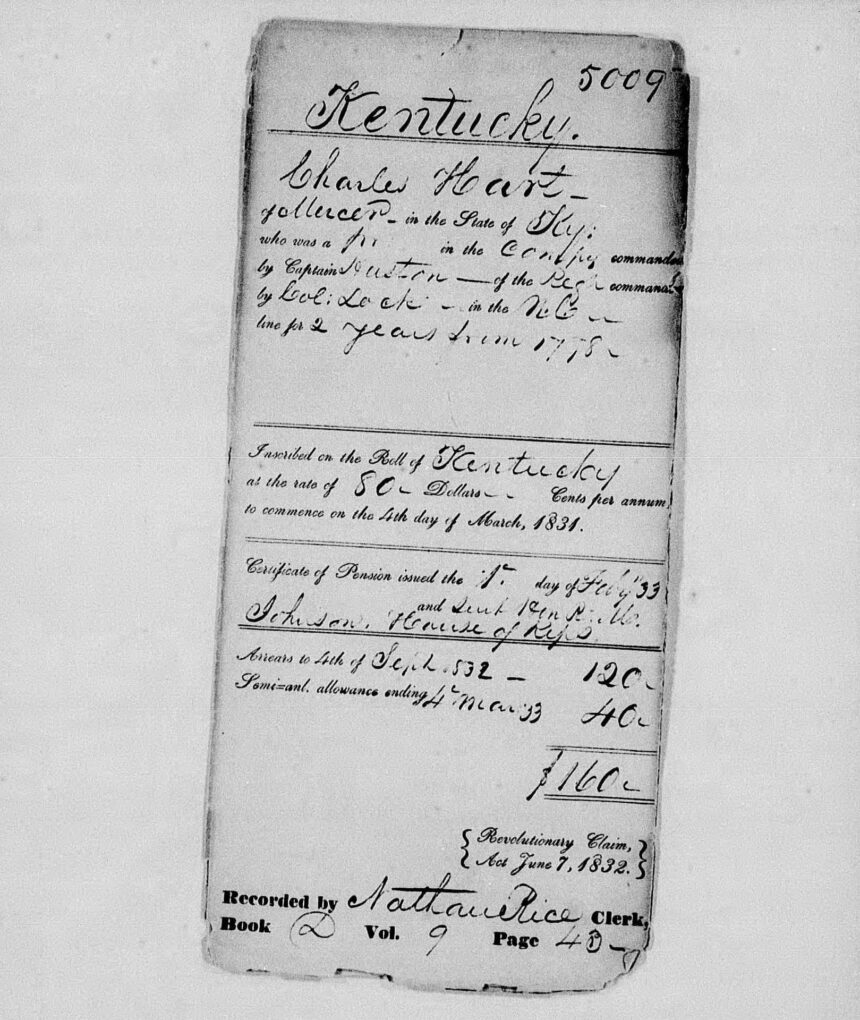 5009
Kentucky.
Charles Hart
of Mercer in the State of Ky:
who was a pr in the Compy commanded
by Captain Huston of the Regt commanded
by Col: Lock in the N.C
line for 2 years from 1778
Inscribed on the Roll of Kentucky
at the rate of 80 Dollars Cents per annum,
to commence on the 4th day of March, 1831.
Certificate of Pension issued the 1st day of Feby 33
and Sent R. M.
Johnson, House of Reps.
Arrears to 4th of Sept 1832 120
Semi-anl. allowance ending 4th Mar 33 40
$160
Revolutionary Claim,
Act June 7, 1832.
Recorded by Nathan Rice Clerk,
Book D Vol. 9 Page